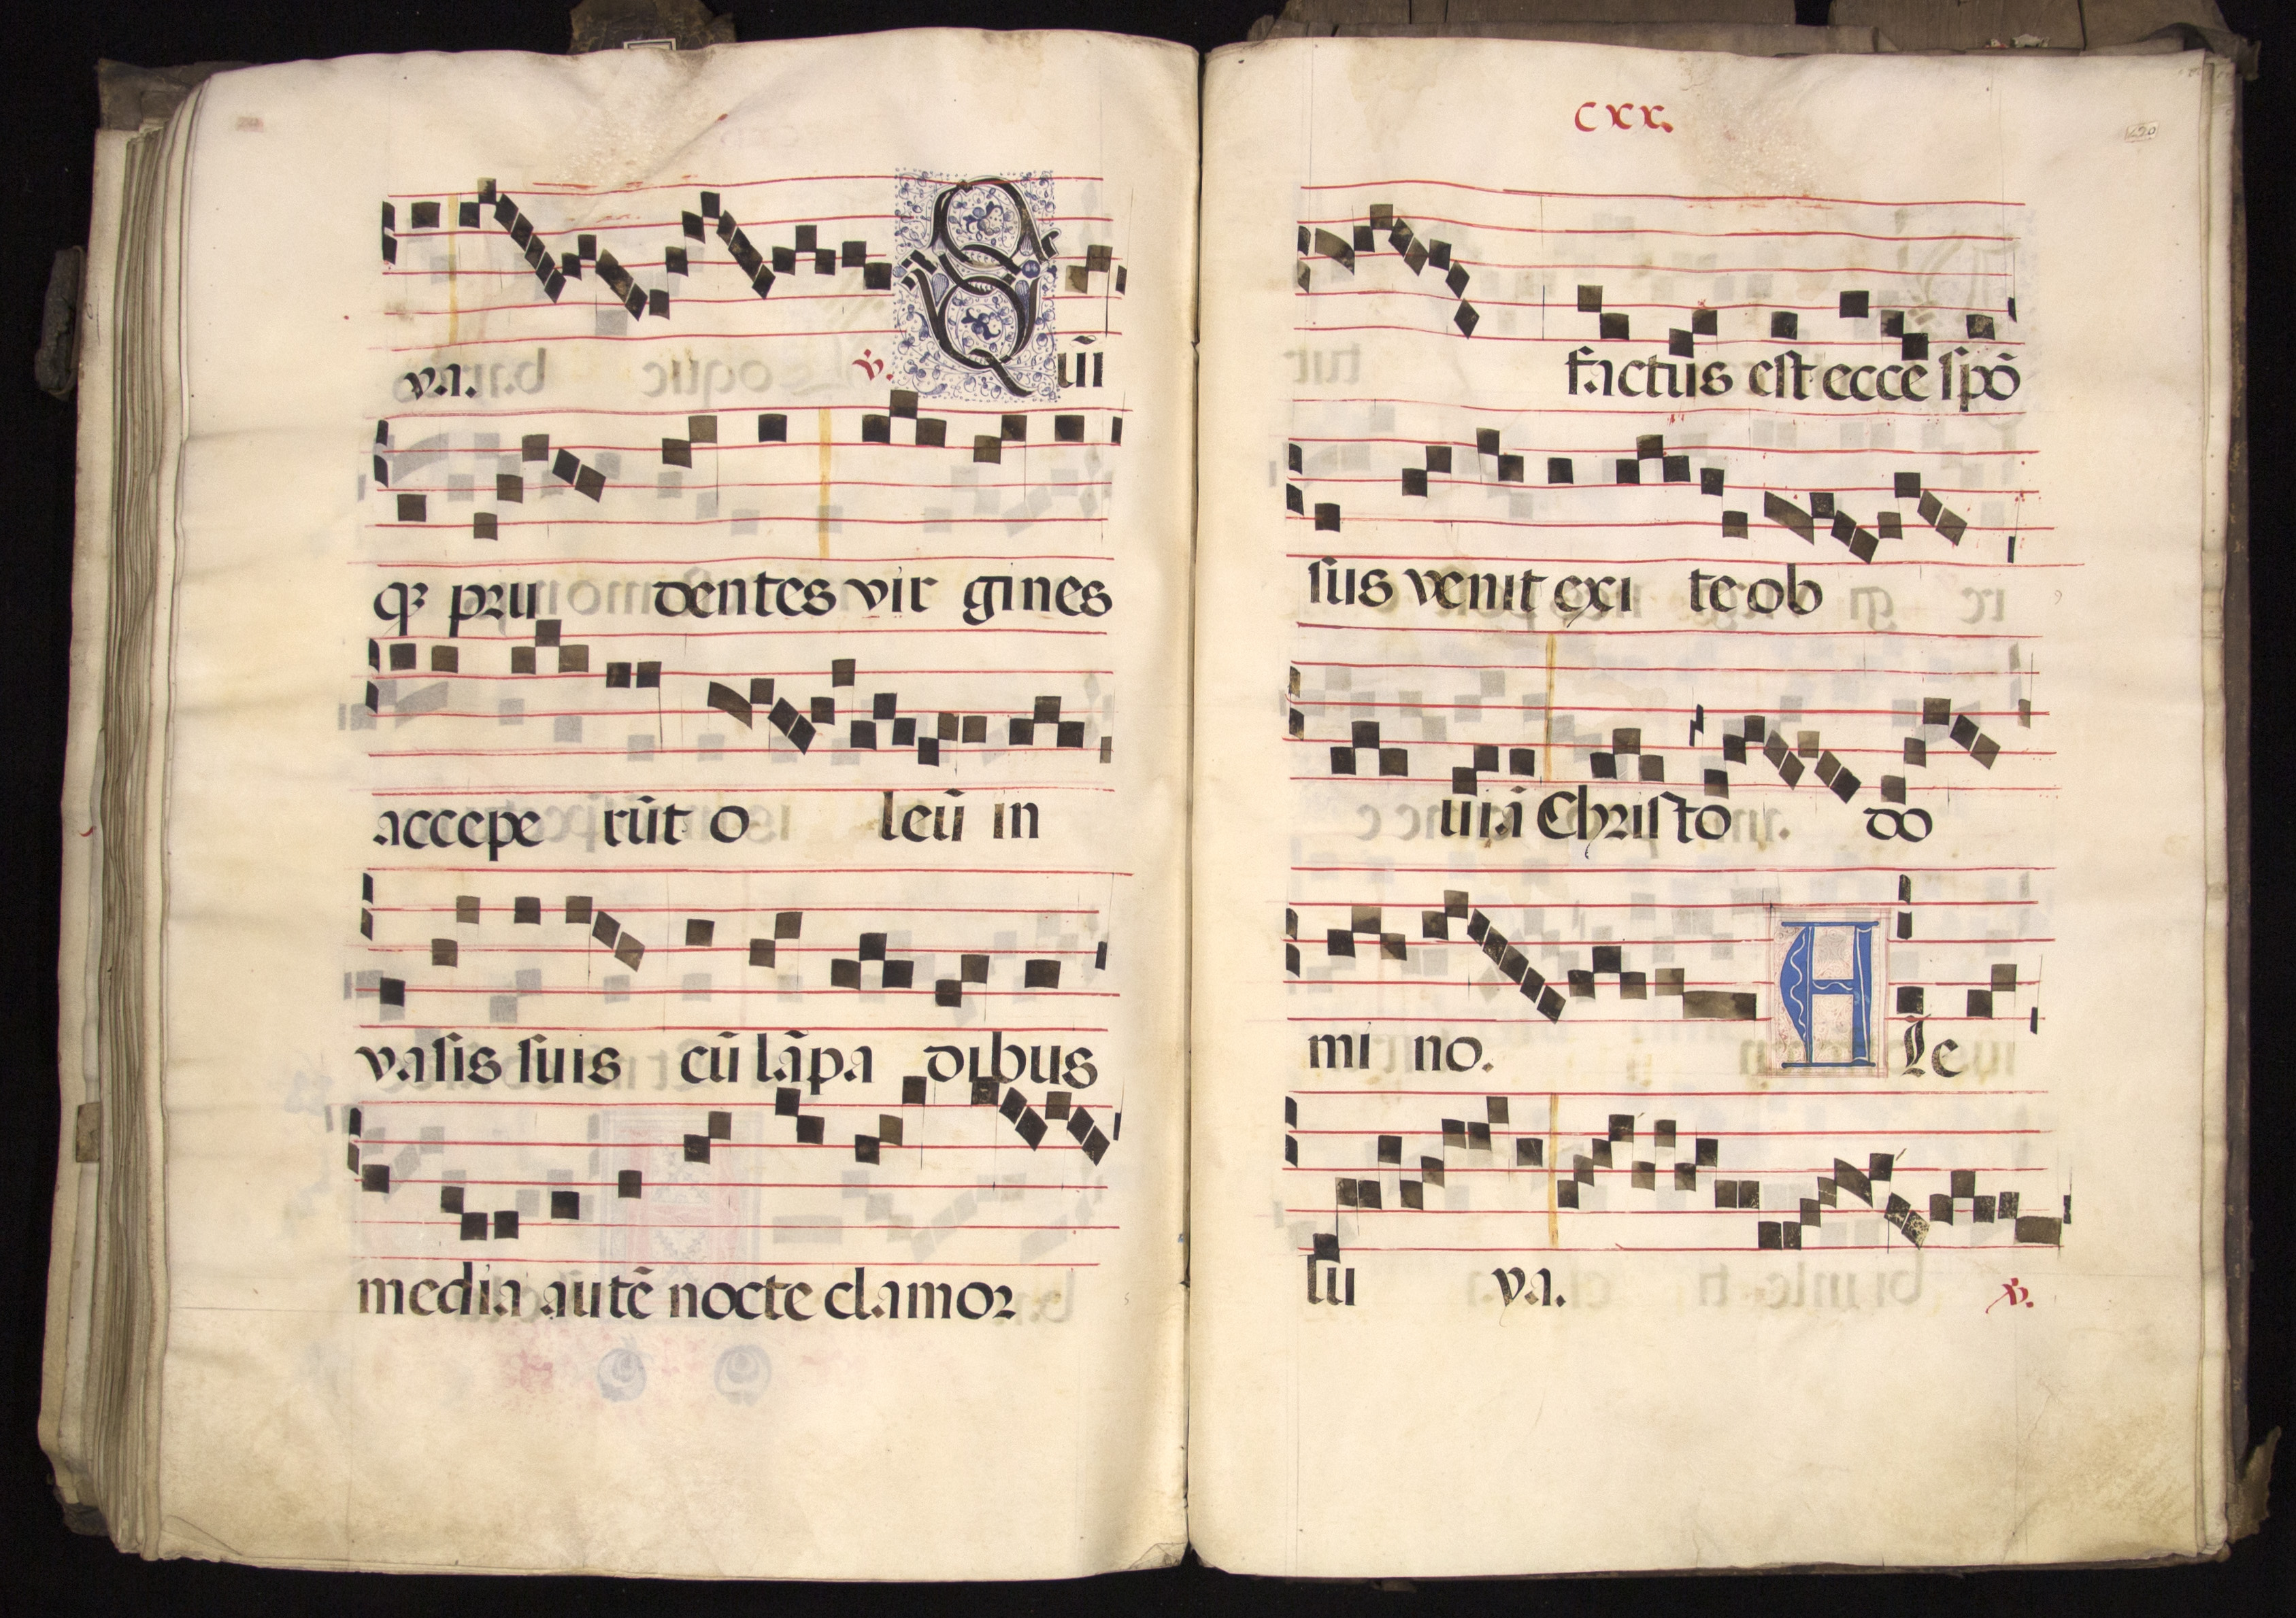 ya. ℣. Quī
qꝫ prudentes virgines
accepe rūt o leū in
vasis suis cū lāpa dibus
media autē nocte clamor
cxx.
factus est ecce spō
sus venit exi te ob
uiā Christo do
mi no. Ale
lu ya. ℣.